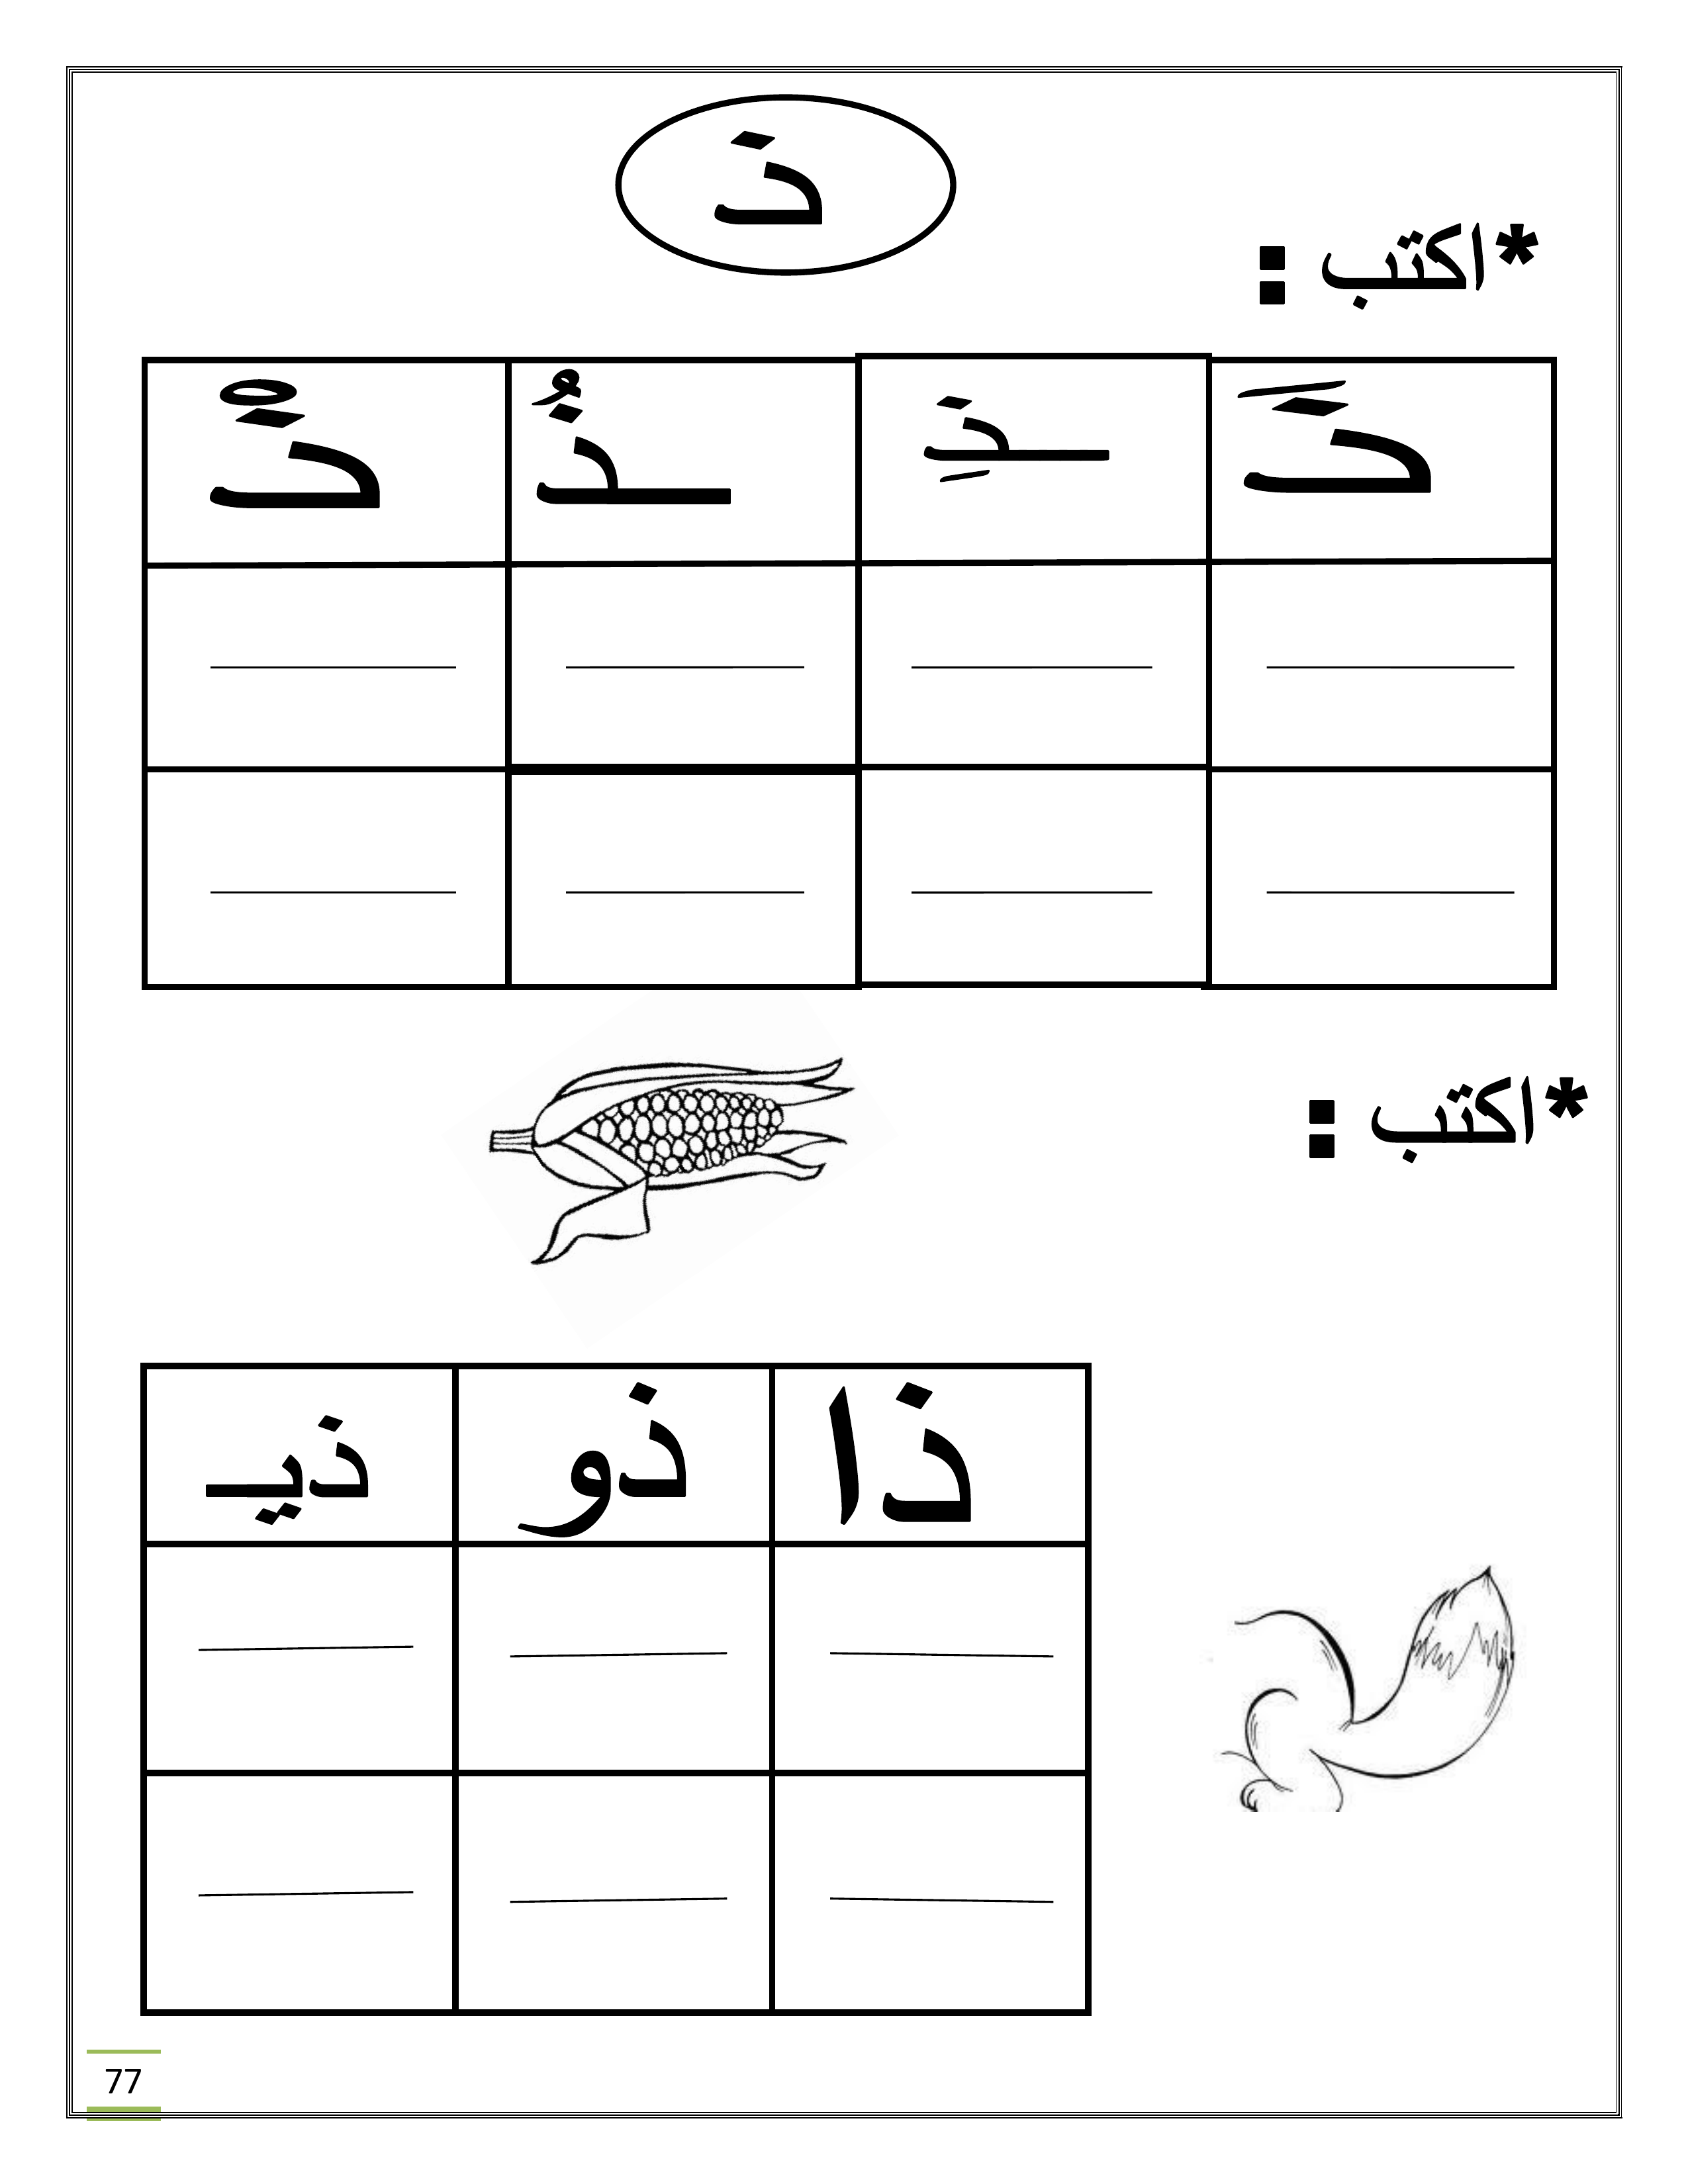 ذ
*اكتب :
ذَ ـذِ ـذُ ذْ
*اكتب :
ذا ذو ذيـ
77